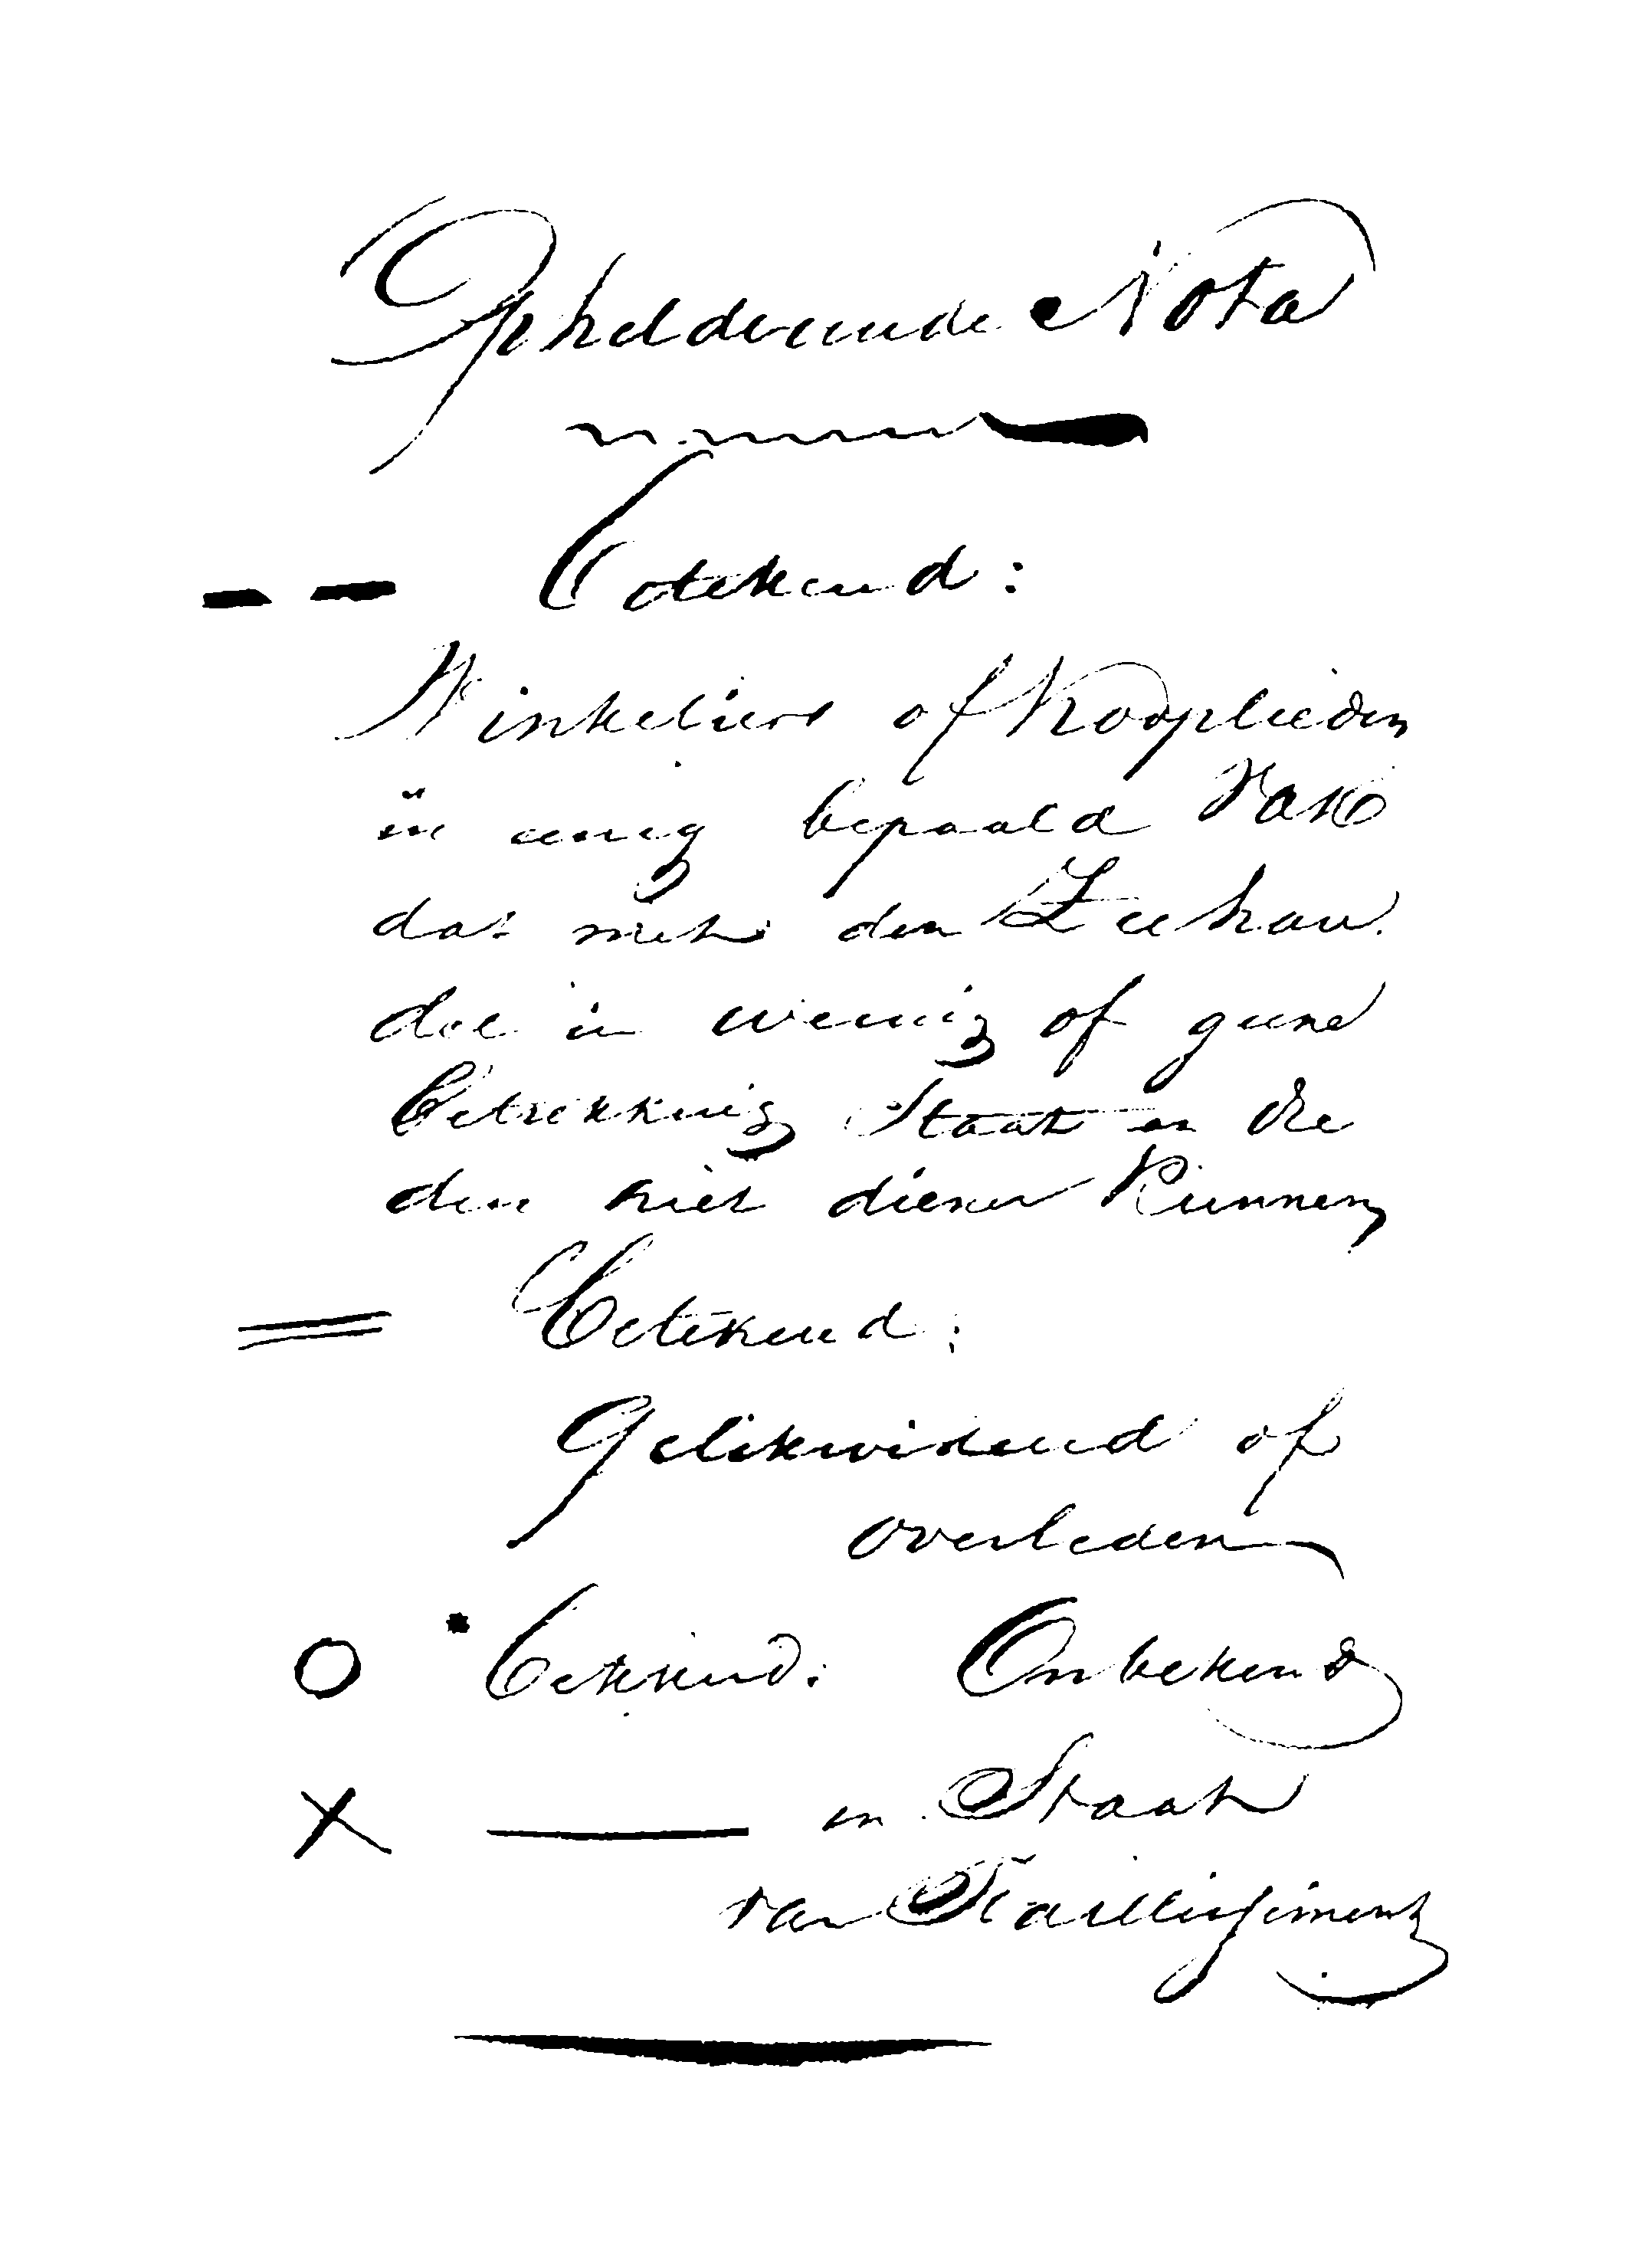 Ophelderende Nota
-- Betekend:
Winkeliers of Kooplieden
in eenig bepaald Vak
dat met den Zeehan
del in weinig of geene
Betrekking Staat en die
den niet dienen Kunnen
= Betekend:
Gelikwideerd of
overleden
O Betekend: Onbekend
X —— in Staat
van Faillissement